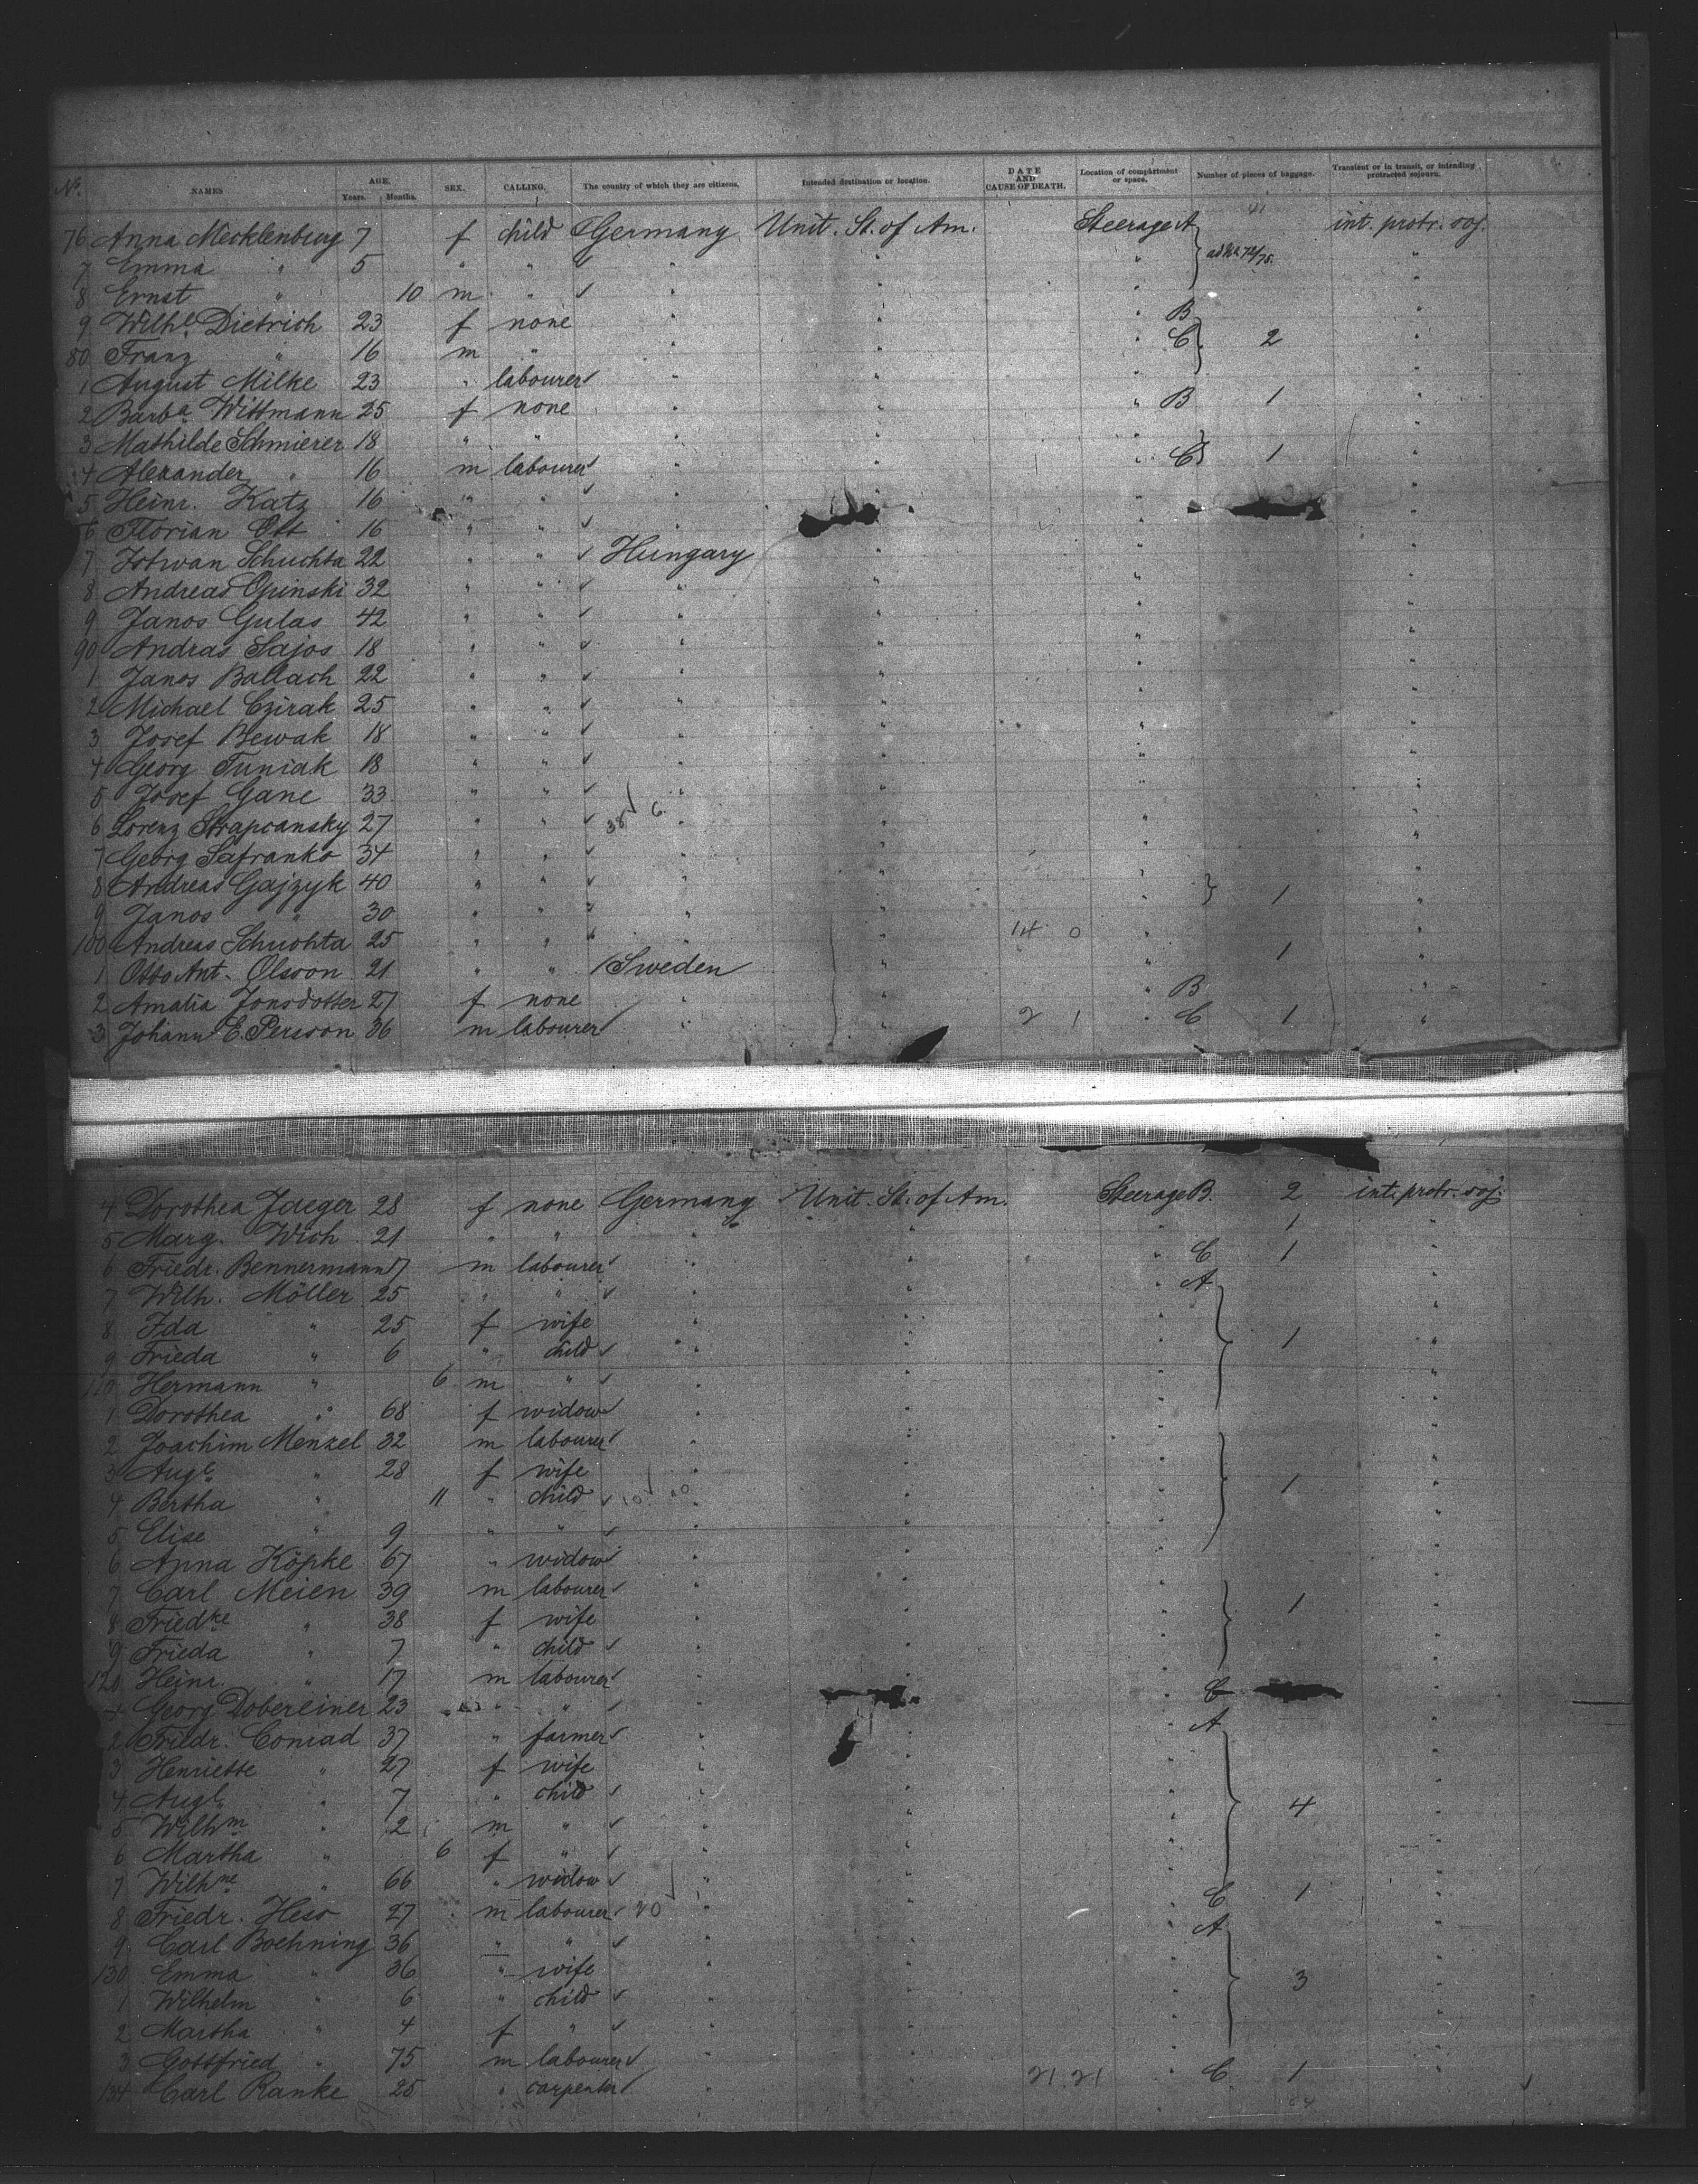 No. NAMES AGE. Years. Months. SEX. CALLING. The country of which they are citizens. Intended destination or location. DATE AND CAUSE OF DEATH. Location of compartment or space. Number of pieces of baggage. Transient or in transit, or intending protracted sojourn.
76 Anna Mecklenburg 7 f child Germany Unit. St. of Am. Steerage A int. protr. soj.
7 Emma " 5 " " " " " ad No 74/75. "
8 Ernst " 10 m " " " " "
9 Wilhe. Dietrich 23 f none " " " B "
80 Franz " 16 m " " " " C 2 "
1 August Milke 23 " labourer " " " "
2 Barba. Wittmann 25 f none " " " B 1 "
3 Mathilde Schmierer 18 " " " " " "
4 Alexander " 16 m labourer " " " C 1 "
5 Heinr. Katz 16 " " " " "
6 Florian Ott 16 " " " " " "
7 Istwan Schuchta 22 " " Hungary " " "
8 Andreas Opinski 32 " " " " " "
9 Janos Gulas 42 " " " " " "
90 Andras Sajos 18 " " " " " "
1 Janos Ballach 22 " " " " " "
2 Michael Czirak 25 " " " " " "
3 Josef Bewak 18 " " " " " "
4 Georg Tuniak 18 " " " " " "
5 Josef Gane 33 " " " " " "
6 Lorenz Strapcansky 27 " " 38 6 " " " "
7 Georg Safranko 34 " " " " " "
8 Andreas Gajzyk 40 " " " " " 1 "
9 Janos " 30 " " " " " "
100 Andreas Schuchta 25 " " " " 14 0 " "
1 Otto Ant. Olsson 21 " " Sweden " " 1 "
2 Amalia Jonsdotter 27 f none " " " B "
3 Johann E. Persson 36 m labourer " " 2 1 " C 1 "
4 Dorothea Jaeger 28 f none Germany Unit. St. of Am. Steerage B. 2 int. protr. soj.
5 Marg. Wich 21 " " " " " 1 "
6 Friedr. Bennermann 17 m labourer " " " C 1 "
7 Wilh. Möller 25 " " " " " A "
8 Ida " 25 f wife " " " "
9 Frieda " 6 " child " " " 1 "
110 Hermann " 6 m " " " " "
1 Dorothea " 68 f widow " " " "
2 Joachim Menzel 32 m labourer " " " "
3 Auge. " 28 f wife " " " "
4 Bertha " 11 " child 10 10 " " " 1 "
5 Elise " 9 " " " " " "
6 Anna Köpke 67 " widow " " " "
7 Carl Meien 39 m labourer " " " "
8 Friedke " 38 f wife " " " 1 "
9 Frieda " 7 " child " " " "
120 Heinr. " 17 m labourer " " " "
1 Georg Döbereiner 23 " " " " C "
2 Friedr. Conrad 37 " farmer " " A "
3 Henriette " 27 f wife " " " "
4 Auge. " 7 " child " " " "
5 Wilhm " 2 m " " " " 4 "
6 Martha " 6 f " " " " "
7 Wilhne " 66 " widow " " " "
8 Friedr. Hess 27 m labourer 20 " " " C 1 "
9 Carl Boehning 36 " " " " " A "
130 Emma " 36 " wife " " " "
1 Wilhelm " 6 " child " " " 3 "
2 Martha " 4 f " " " " "
3 Gottfried " 75 m labourer " " " "
134 Carl Ranke 25 " carpenter " " 21 21 " C 1 "